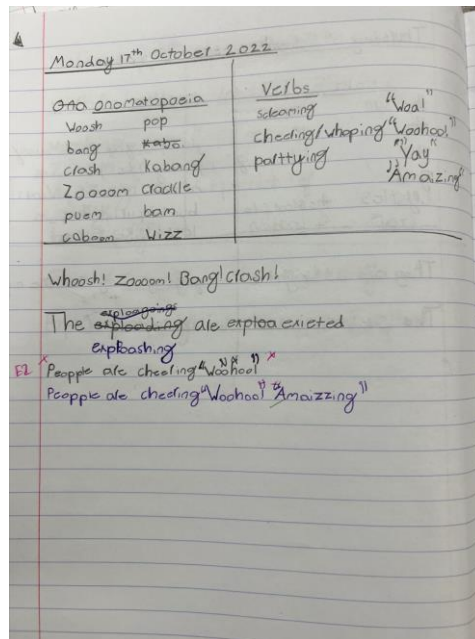 Monday 17th October 2022
Ono onomatopoeia
Woosh pop
bang Kabo
crash Kabang
Zoooom Cradkle
puem bam
caboom Wizz
Verbs
screaming "Woa!"
cheering/whoping "Woohoo!"
parttying "Yay"
"Amaizing"
Whoosh! Zoooom! Bang! Crash!
exploagoings
The exploading are exploa exieted
exploashing
E2 Peopple are cheering "Woohoo!"
Peopple are cheering "Woohoo!" "Amaizzing"